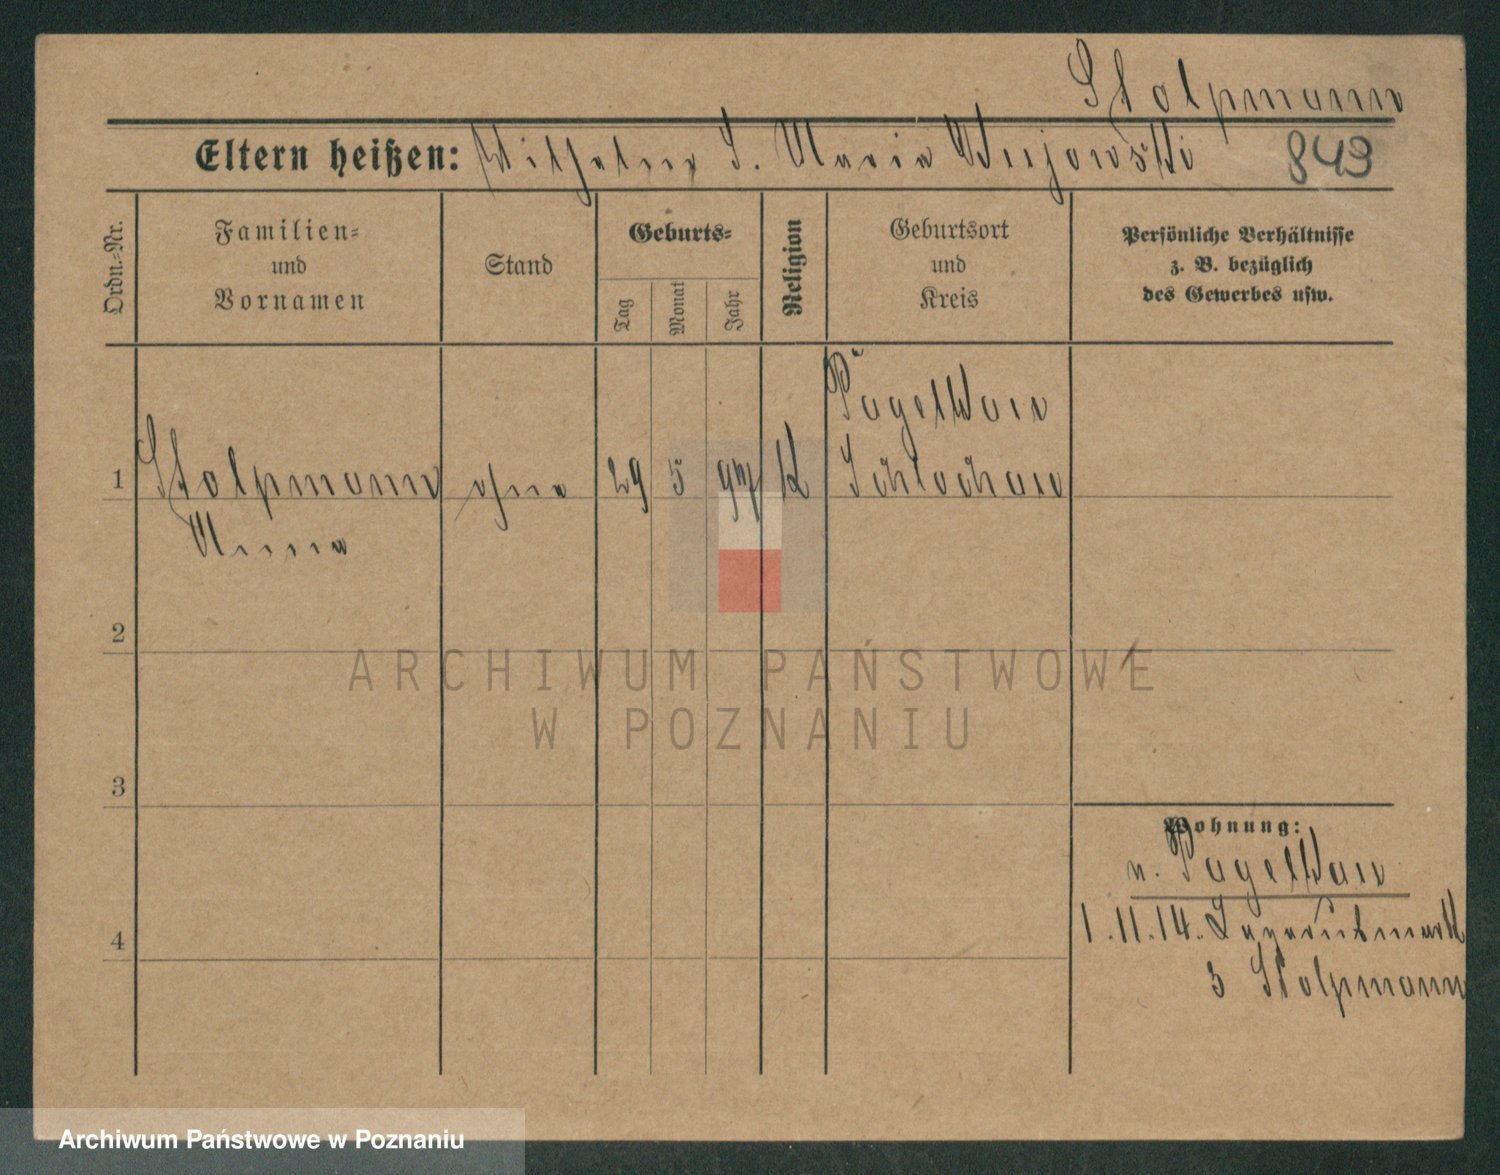 Stolpmann
Eltern heißen: Wilhelm S. Maria
849
Ordn.=Nr.
Familien=
und
Vornamen
Stand
Geburts=
Tag
Monat
Jahr
Religion
Geburtsort
und
Kreis
Persönliche Verhältnisse
z. B. bezüglich
des Gewerbes usw.
Pagelkau
1 Stolpmann ohne 29 5 97 K Schlochau
Anna
2
ARCHIWUM PAŃSTWOWE
W POZNANIU
3
Wohnung:
n. Pagelkau
4
1.11.14.
b Stolpmann
Archiwum Państwowe w Poznaniu